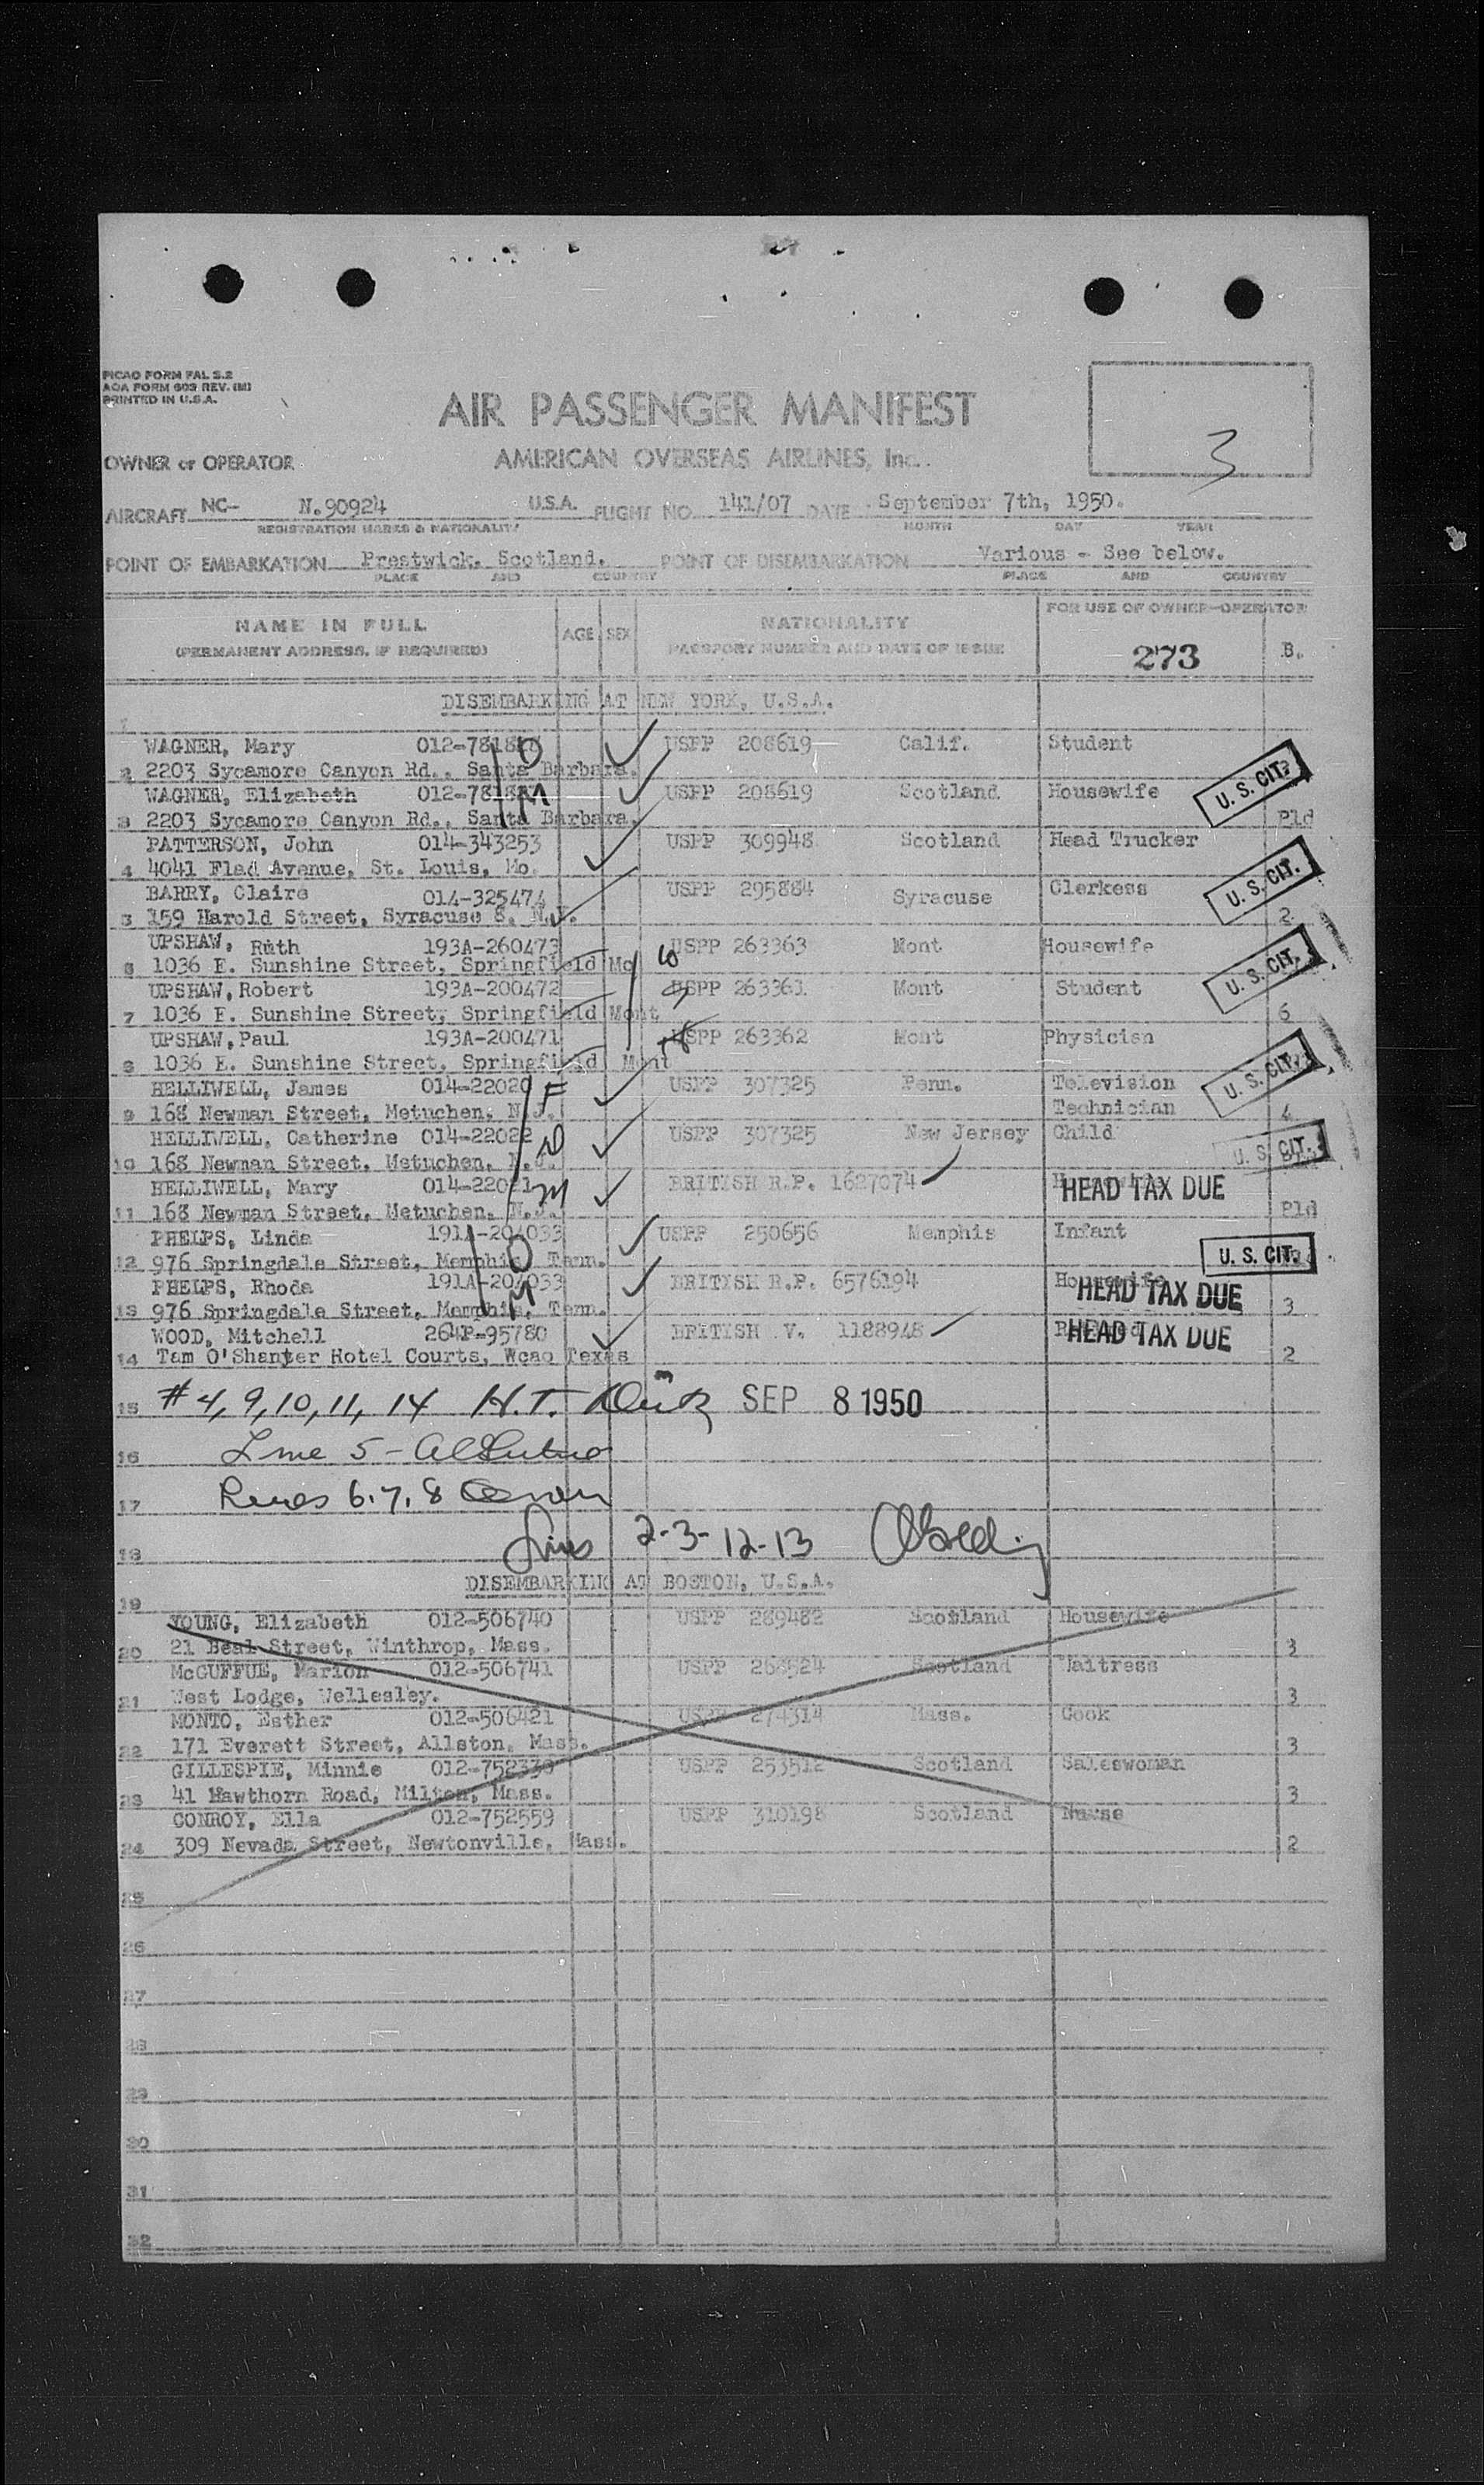 PICAO FORM FAL 2.2
AOA FORM 603 REV. (M)
PRINTED IN U.S.A.
AIR PASSENGER MANIFEST
3
OWNER or OPERATOR AMERICAN OVERSEAS AIRLINES, Inc.
AIRCRAFT NC- N.90924 U.S.A. FLIGHT NO. 141/07 DATE September 7th, 1950.
REGISTRATION MARKS & NATIONALITY MONTH DAY YEAR
POINT OF EMBARKATION Prestwick, Scotland. POINT OF DISEMBARKATION Various - See below.
PLACE AND COUNTRY PLACE AND COUNTRY
NAME IN FULL AGE SEX NATIONALITY FOR USE OF OWNER-OPERATOR
(PERMANENT ADDRESS, IF REQUIRED) PASSPORT NUMBER AND DATE OF ISSUE 273 B.
DISEMBARKING AT NEW YORK, U.S.A.
1
WAGNER, Mary 012-7818 D USPP 208619 Calif. Student
2 2203 Sycamore Canyon Rd., Santa Barbara. U. S. CIT.
WAGNER, Elizabeth 012-7818 M USPP 208619 Scotland Housewife
3 2203 Sycamore Canyon Rd., Santa Barbara. Pld
PATTERSON, John 014-343253 USPP 309948 Scotland Head Trucker
4 4041 Flad Avenue, St. Louis, Mo. U. S. CIT.
BARRY, Claire 014-325474 USPP 295884 Syracuse Clerkess
5 159 Harold Street, Syracuse 8. N.Y. 2
UPSHAW, Ruth 193A-260473 USPP 263363 Mont Housewife
6 1036 E. Sunshine Street, Springfield Mo U. S. CIT.
UPSHAW, Robert 193A-200472 USPP 263361 Mont Student
7 1036 E. Sunshine Street, Springfield Mont 6
UPSHAW, Paul 193A-200471 USPP 263362 Mont Physician
8 1036 E. Sunshine Street, Springfield Mont U. S. CIT.
HELLIWELL, James 014-22020 F USPP 307325 Penn. Television
9 168 Newman Street, Metuchen, N.J. Technician 4
HELLIWELL, Catherine 014-22022 D USPP 307325 New Jersey Child
10 168 Newman Street, Metuchen, N.J. U. S. CIT.
HELLIWELL, Mary 014-22021 M BRITISH R.P. 1627074 HEAD TAX DUE
11 168 Newman Street, Metuchen, N.J. Pld
PHELPS, Linda 191A-204033 D USPP 250656 Memphis Infant
12 976 Springdale Street, Memphis, Tenn. U. S. CIT.
PHELPS, Rhoda 191A-204033 M BRITISH R.P. 6576194 Housewife HEAD TAX DUE
13 976 Springdale Street, Memphis, Tenn. 3
WOOD, Mitchell 264P-95780 BRITISH V. 1188948 HEAD TAX DUE
14 Tam O'Shanter Hotel Courts, Wcao Texas 2
15 #4, 9, 10, 11, 14 H.T. SEP 8 1950
16 Line 5 -
17 Lines 6.7.8
18 Lines 2-3-12-13
DISEMBARKING AT BOSTON, U.S.A.
19
YOUNG, Elizabeth 012-506740 USPP 289482 Scotland Housewife
20 21 Beal Street, Winthrop, Mass. 3
McGUFFUE, Marion 012-506741 USPP 268524 Scotland Waitress
21 West Lodge, Wellesley. 3
MONTO, Esther 012-506421 USPP 274314 Mass. Cook
22 171 Everett Street, Allston, Mass. 3
GILLESPIE, Minnie 012-752330 USPP 253512 Scotland Saleswoman
23 41 Hawthorn Road, Milton, Mass. 3
CONROY, Ella 012-752559 USPP 310198 Scotland Nurse
24 309 Nevada Street, Newtonville, Mass. 2
25
26
27
28
29
30
31
32